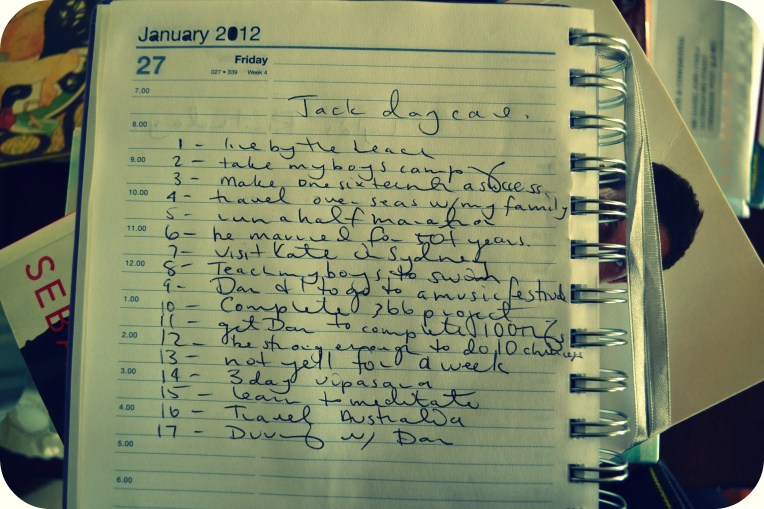 January 2012
27 Friday
027 • 339 Week 4
7.00
Jack daycare.
8.00
1 - live by the beach
9.00
2 - take my boys camping
3 - make one sixteenth a success
10.00
4 - travel overseas w/ my family
5 - run a half marathon
11.00
6 - be married for 50+ years.
7 - visit Kate in Sydney
12.00
8 - Teach my boys to swim
9 - Dan & I to go to a music festival
1.00
10 - Complete 366 project
11 - get Dan to complete 100
2.00
12 - be strong enough to do 10 chinups
13 - not yell for a week
3.00
14 - 3 day vipasana
15 - learn to meditate
4.00
16 - Travel Australia
17 - w/ Dan
5.00
6.00
SEB